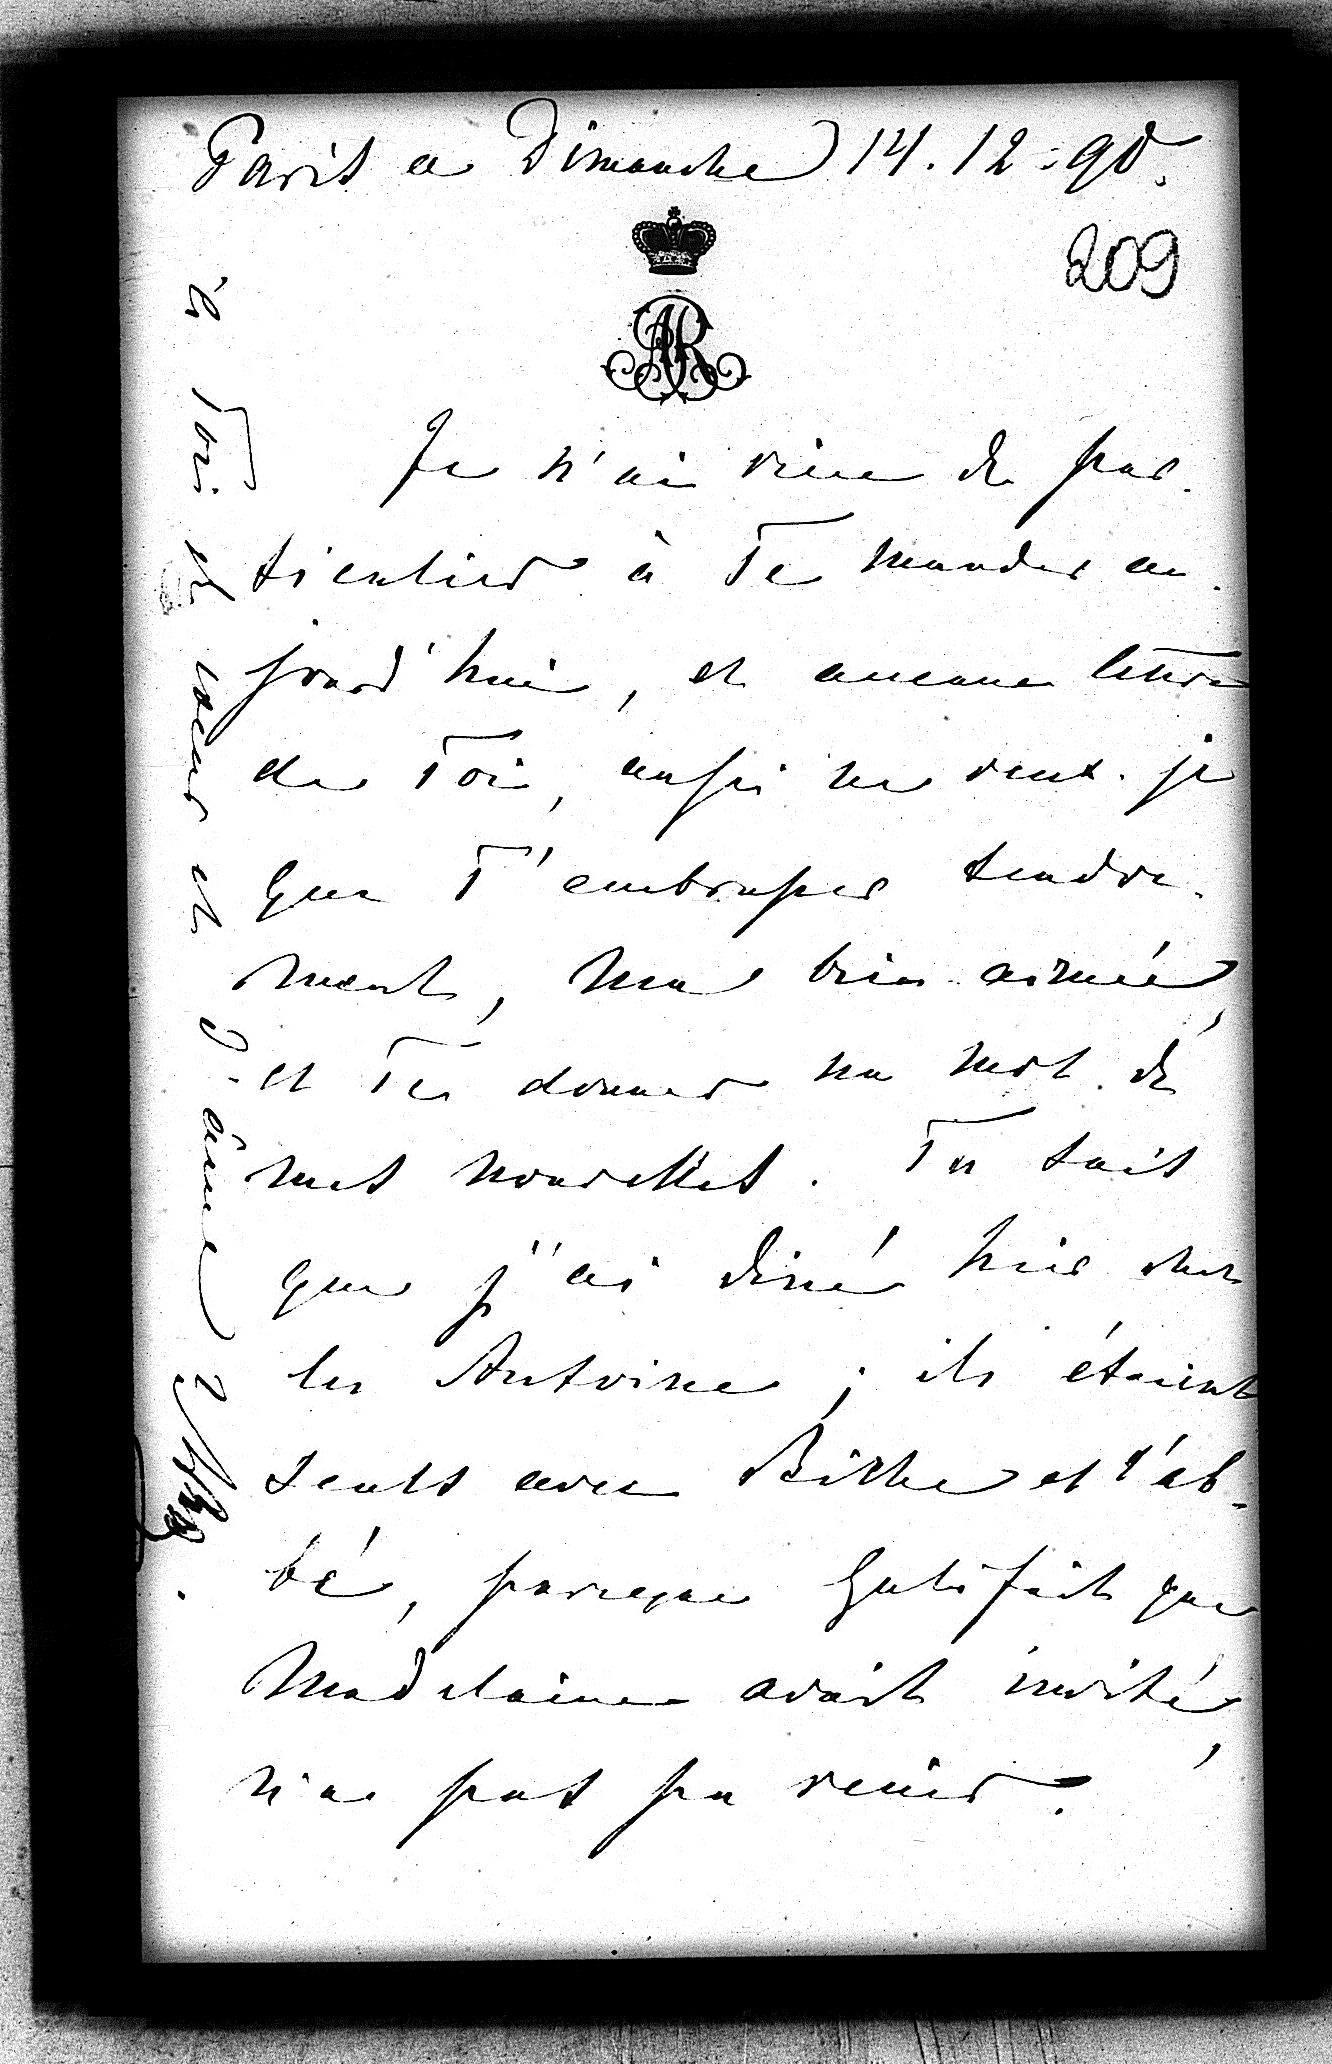 Paris ce Dimanche 14.12.90.
209
AR
Je n'ai rien de par-
ticulier à Te mander au-
jourd'hui, et aucune lettre
de Toi, aussi ne veux-je
que T'embrasser tendre-
ment, ma bien-aimée,
et Te donner un mot de
mes nouvelles. Tu sais
que j'ai diné hier chez
les Antoine; ils étaient
seuls avec et l'ab-
bé, parceque que
Madelaine avait invité,
n'a pas pu venir.
à Toi de cœur et d'âme